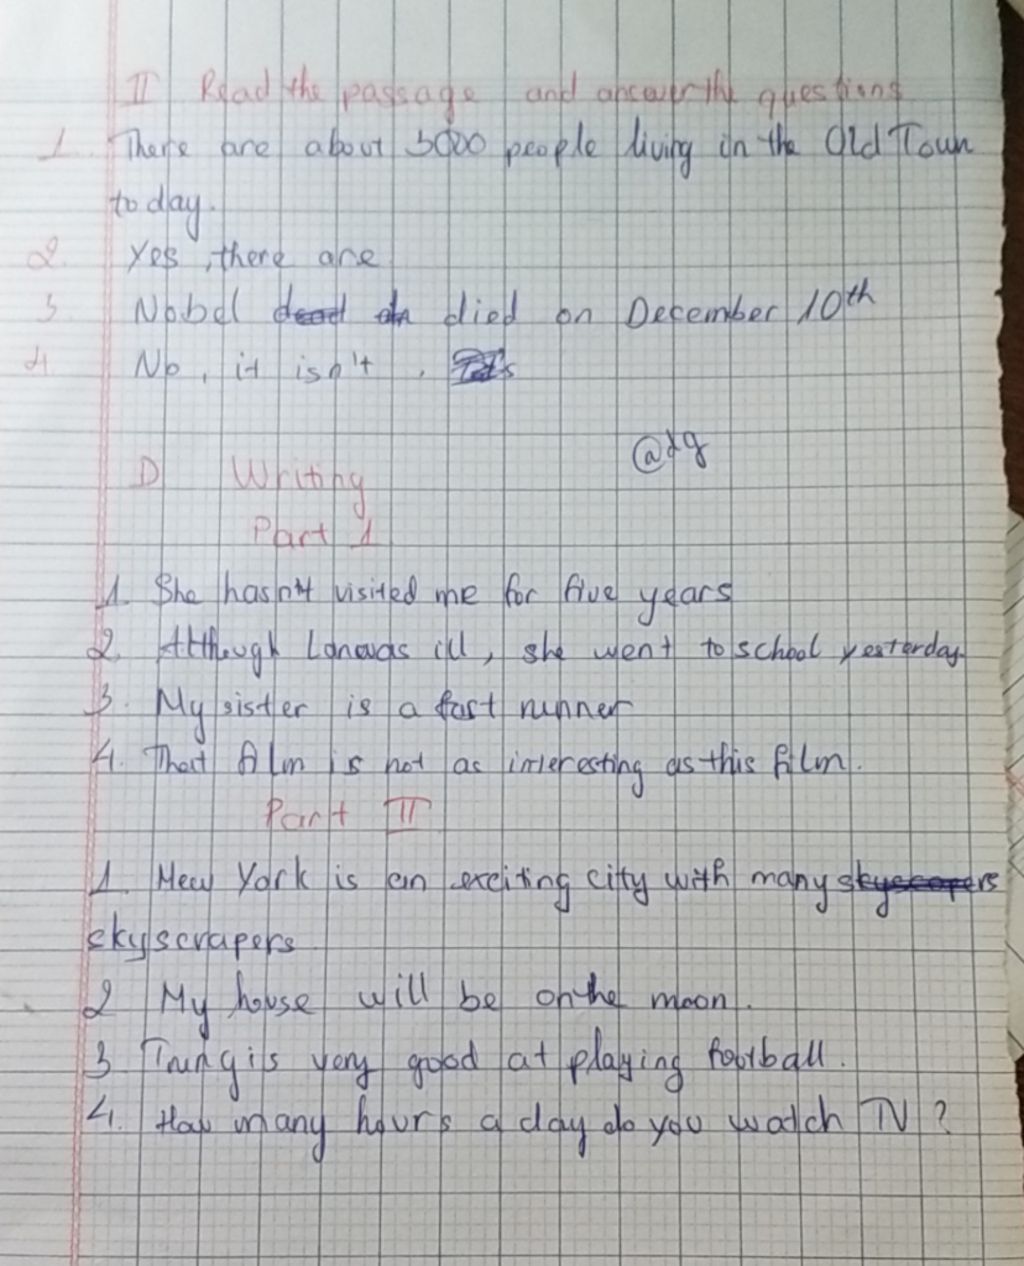 II Read the passage and answer the questions
1. There are about 5000 people living in the Old Town
today.
2. Yes, there are
3. Nobel died on December 10th
4. No, it isn't.
D Writing
Part 1
1. She hasn't visited me for five years
2. Although Lan was ill, she went to school yesterday.
3. My sister is a fast runner
4. That film is not as interesting as this film.
Part II
1. New York is an exciting city with many
skyscrapers
2 My house will be on the moon.
3 Trung is very good at playing football.
4. How many hours a day do you watch TV ?